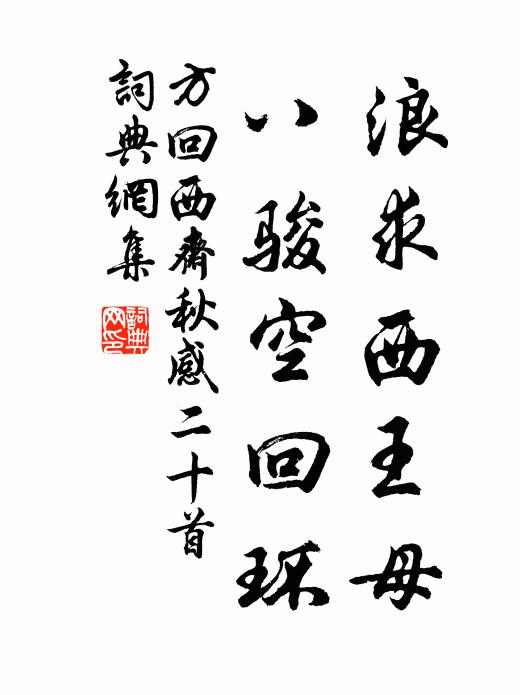 浪求西王母
八骏空回环
方回西斋秋感二十首
詞典網集
詞典网印